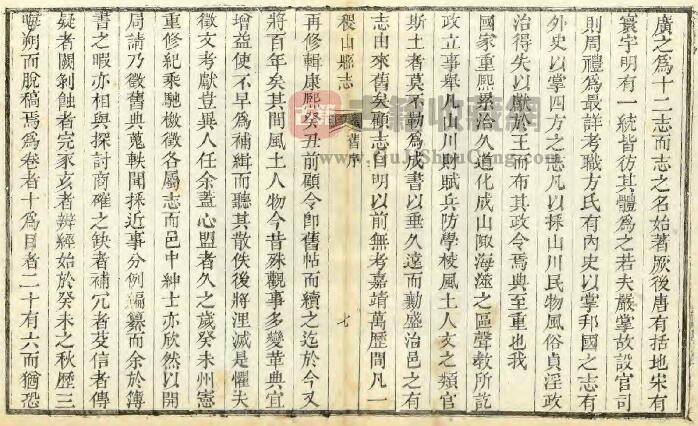 廣之爲十二志而志之名始著厥後唐有括地宋有
寰宇明有一統皆彷其體爲之若夫嚴掌故設官司
則周禮爲最詳考職方氏有內史以掌邦國之志有
外史以掌四方之志凡以採山川民物風俗貞淫政
治得失以獻於王而布其政令焉典至重也我
國家重熙累治久道化成山陬海澨之區聲敎所訖
政立事舉凡山川財賦兵防學校風土人文之類官
斯土者莫不勒爲成書以垂久遠而勷盛治邑之有
志由來舊矣顧志自明以前無考嘉靖萬歷間凡一
稷山縣志
舊序
七
再修輯康熙癸丑前顧令卽舊帖而續之迄於今又
將百年矣其間風土人物今昔殊觀事多變革典宜
增益使不早爲補緝而聽其散佚後將湮滅是懼夫
徵文考獻豈異人任余蓋心盟者久之歲癸未州憲
重修紀乘馳檄徵各屬志而邑中紳士亦欣然以開
局請乃徵舊典蒐軼聞採近事分例編纂而余於簿
書之暇亦相與探討商確之缺者補冗者芟信者傳
疑者闕剝蝕者完豕亥者辨經始於癸未之秋歷三
晦朔而脫稿焉爲卷者十爲目者二十有六而猶恐
古籍收藏網
www.GuJiShouCang.com